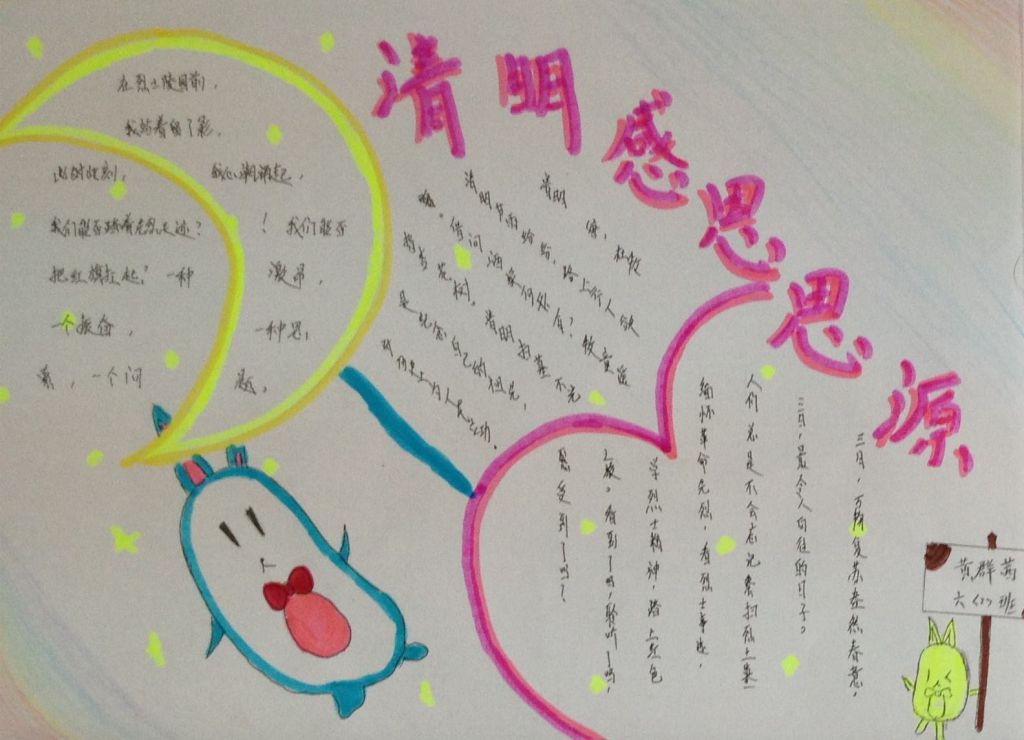 清明感恩思源
在烈士陵园前，
我站着留了影，
此时此刻， 我心潮涌起，
我们能否踏着先烈足迹？ ！ 我们能否
把红旗扛起？一种 激昂，
一个振奋， 一种思，
索，一个问 题。
清明 唐，杜牧
清明节雨纷纷，路上行人欲
魂。借问酒家何处有？牧童遥
指杏花村。清明扫墓不光
是纪念自己的祖先，
三月，万物复苏盎然春意，
三月，最令人向往的日子。
人们总是不会忘记祭扫烈士墓
缅怀革命先烈，看烈士事迹，
学烈士精神，踏上红色
之旅。看到了吗，聆听了吗，
感受到了吗？
黄群茜
六(2)班